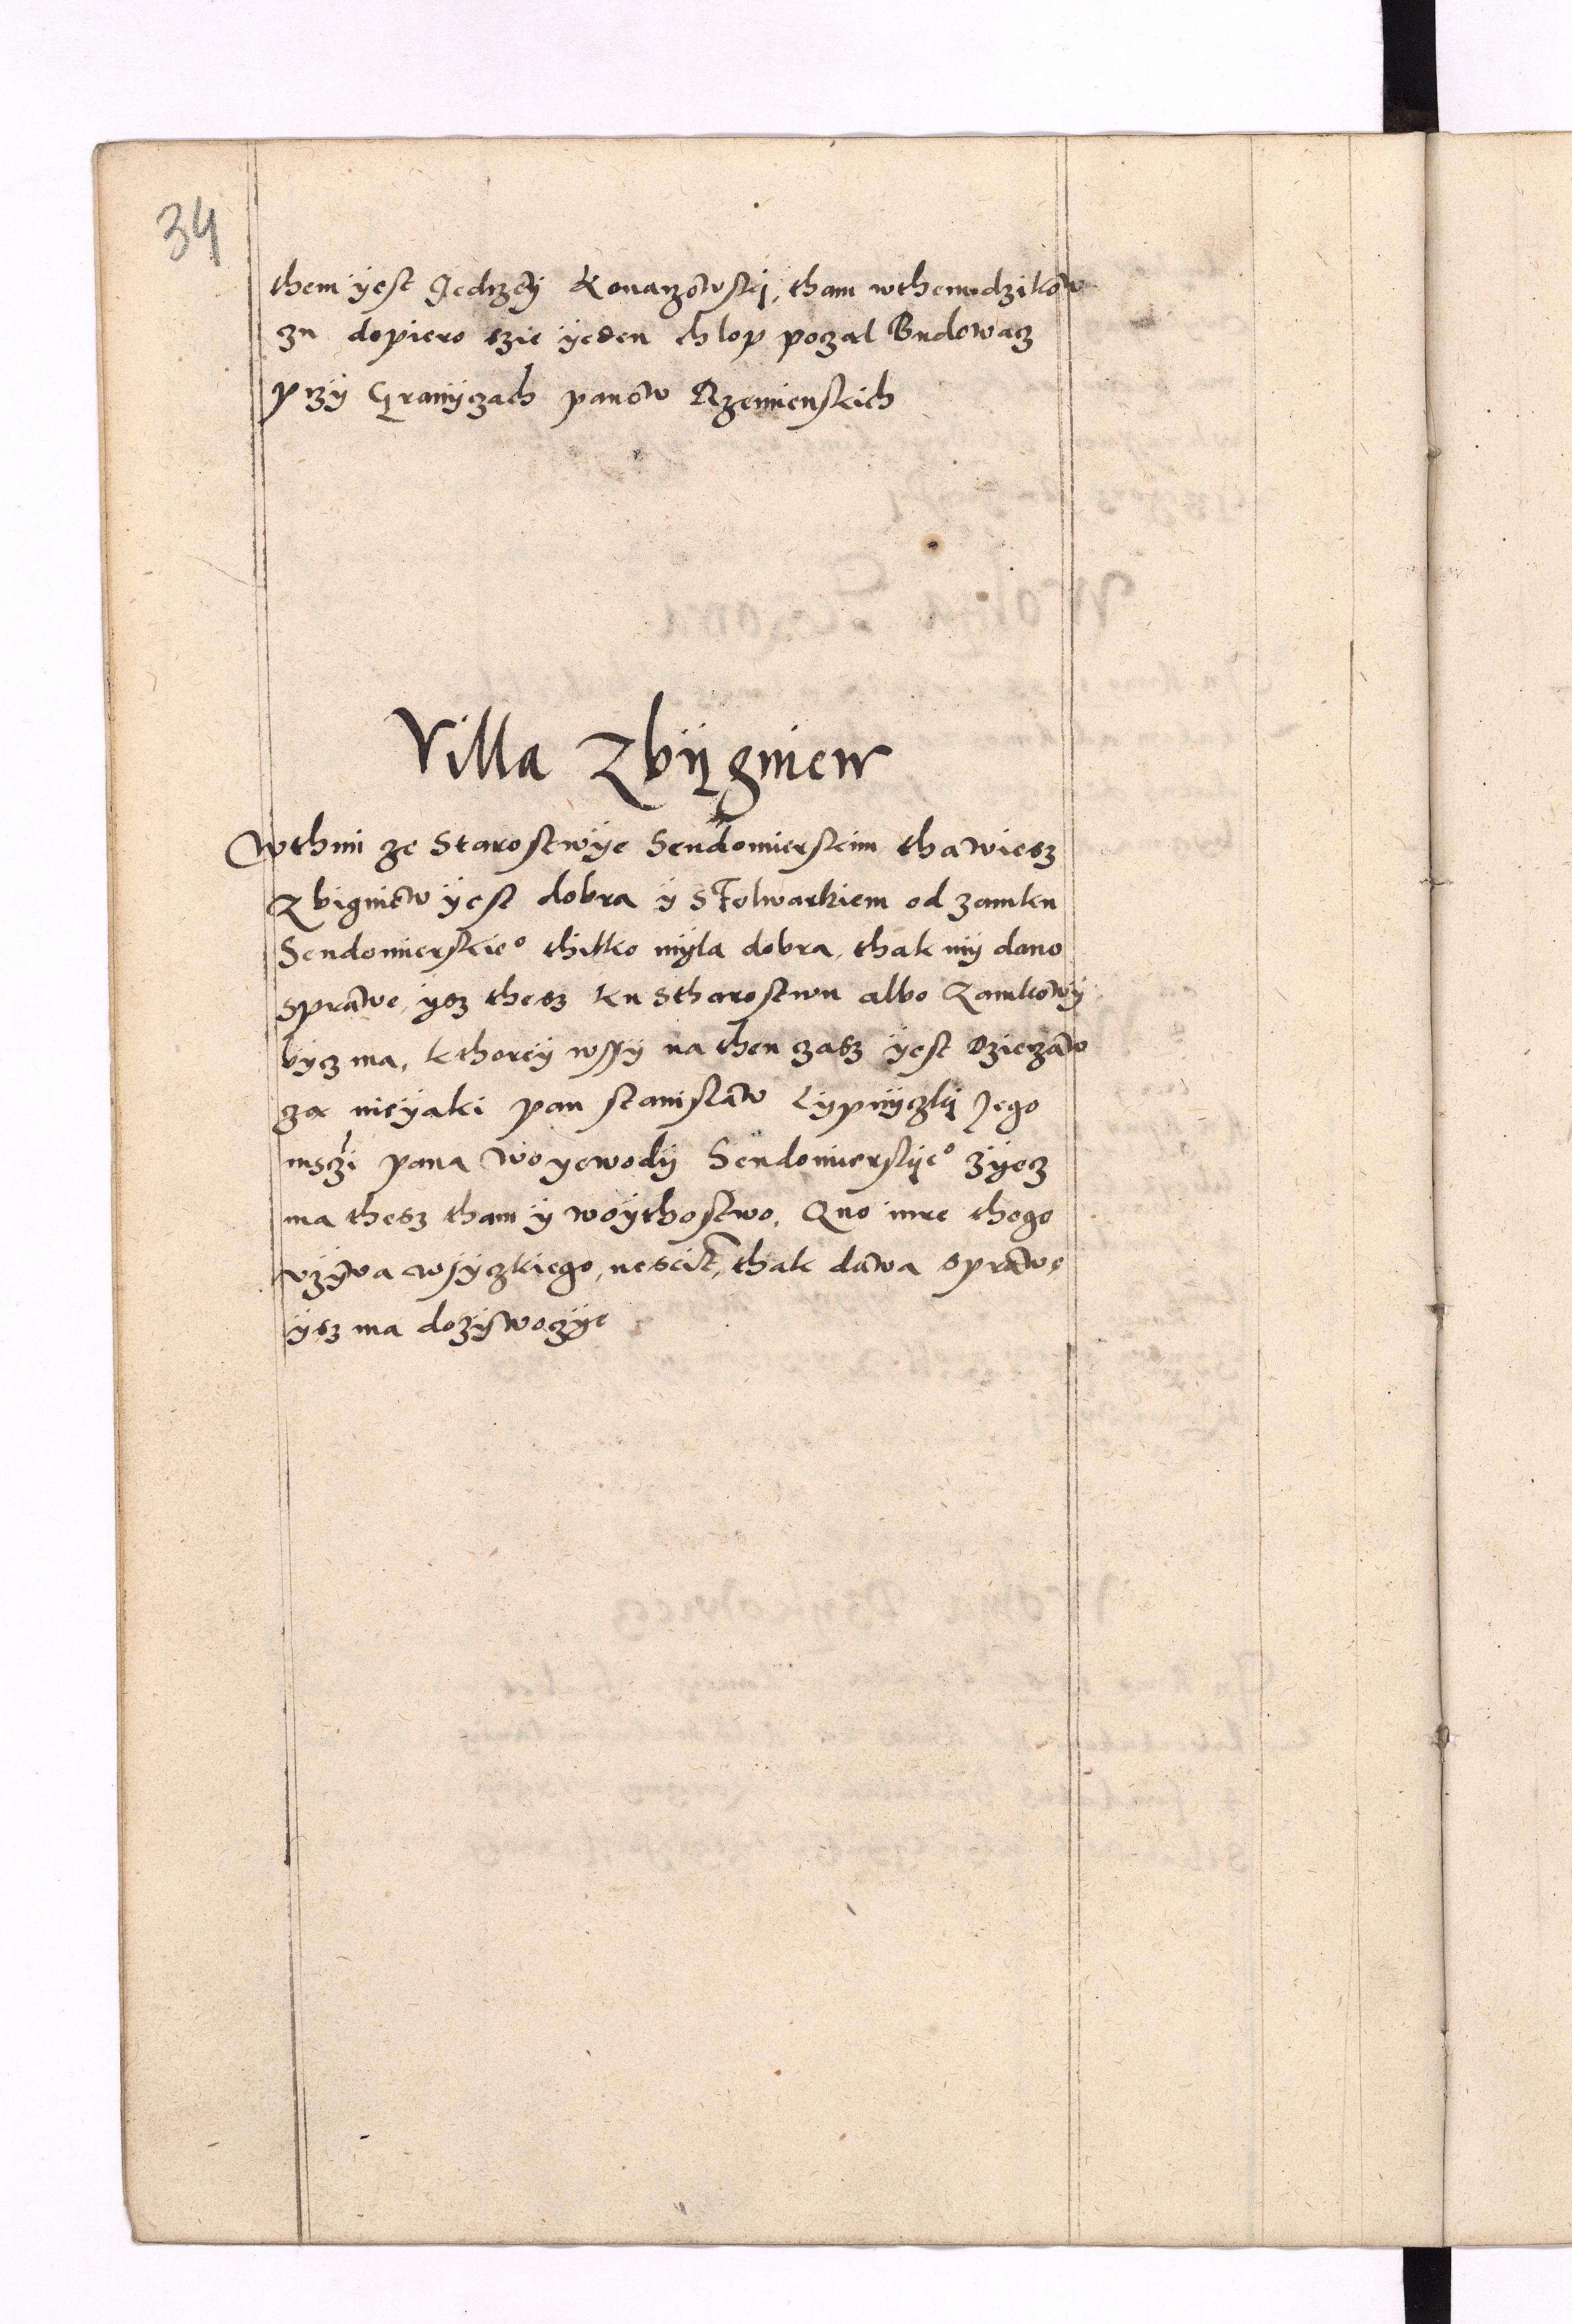 34
them yest Jedrzey Konarzowskj, tham wthem dzikow
czu dopiero szie yeden chlop poczal Budowacz
przy Granyczach panow Rzemienskich
Villa Zbygniew
Wthim ze Starostwye Sendomierskim tha wiesz
Zbigniow yest dobra y s Folwarkiem od zamku
Sendomierskieo thilko myla dobra, thak my dano
sprawe, ysz thesz ku Starostwu albo Zamkowy
bycz ma, kthorey wssy na then czasz yest Dzierzaw
cza nieyaki pan Stanislaw Lypnyczkj Jego
msczi pana Woyewody Sendomierskyeo zyecz
ma thesz tham y woythostwo. Quo iure thego
vzywa wsyczkiego, nescit, thak dawa sprawe
ysz ma dozywoczye